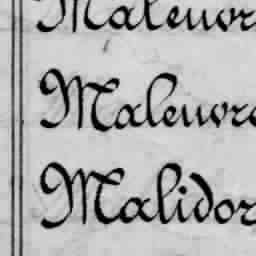 Malevor
Malevore
Malidor